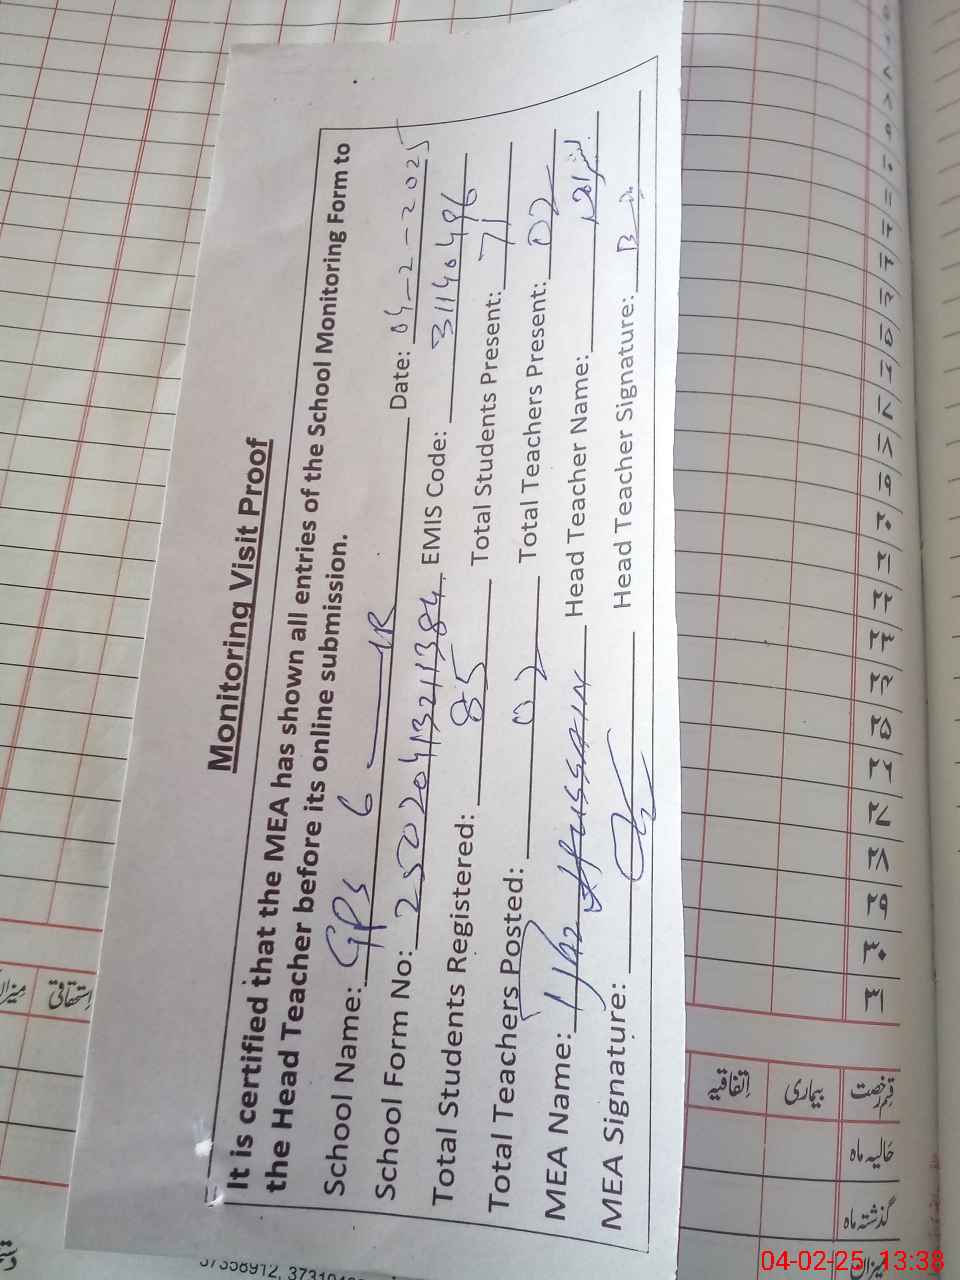 Monitoring Visit Proof
It is certified that the MEA has shown all entries of the School Monitoring Form to
the Head Teacher before its online submission.
School Name: GPS 6 1R Date: 04-2-2025
School Form No: 2502041321384 EMIS Code: 31140496
Total Students Registered: 85 Total Students Present: 71
Total Teachers Posted: 02 Total Teachers Present: 02
MEA Name: Ijaz Hussain Head Teacher Name:
MEA Signature: Head Teacher Signature:
استحقاقی
میزان
۷
۸
۹
۱۰
۱۱
۱۲
۱۳
۱۴
۱۵
۱۶
۱۷
۱۸
۱۹
۲۰
۲۱
۲۲
۲۳
۲۴
۲۵
۲۶
۲۷
۲۸
۲۹
۳۰
۳۱
اتفاقیہ
بیماری
قسم رخصت
حالیہ ماہ
گذشتہ ماہ
میزان
04-02-25 13:38